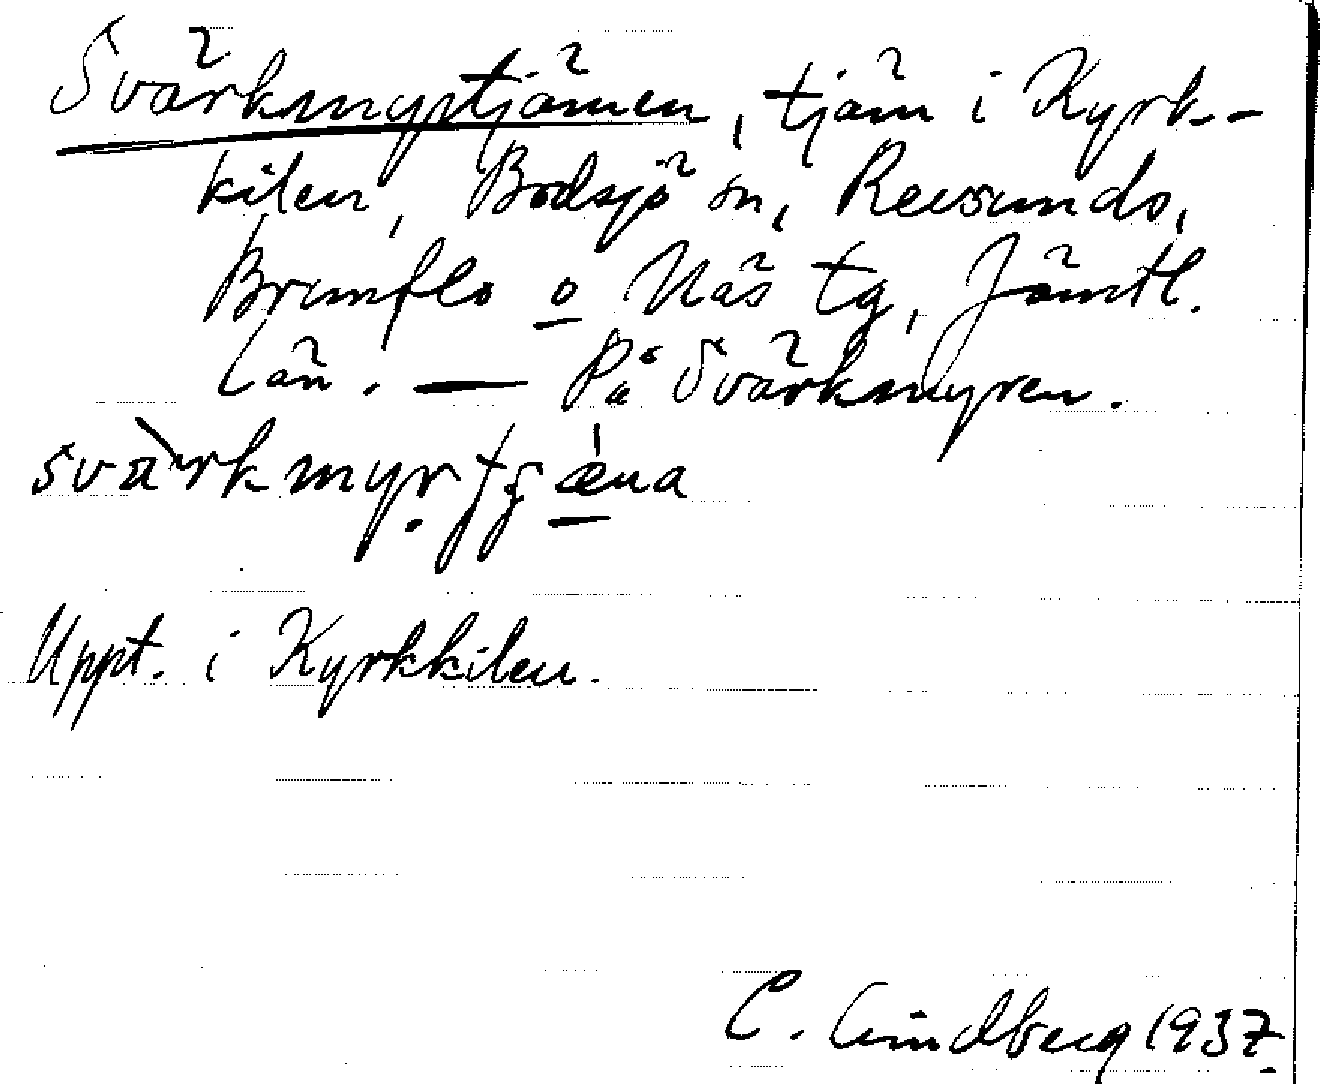 Svärkmyrtjärnen, tjärn i Kyrk-
kilen, Bodsjö sn, Revsunds,
Brunflo o Näs tg, Jämtl.
län. — På Svärkmyren.
svàrkmyr̩tʃǽna
Uppt. i Kyrkkilen.
C. Lindberg 1937.